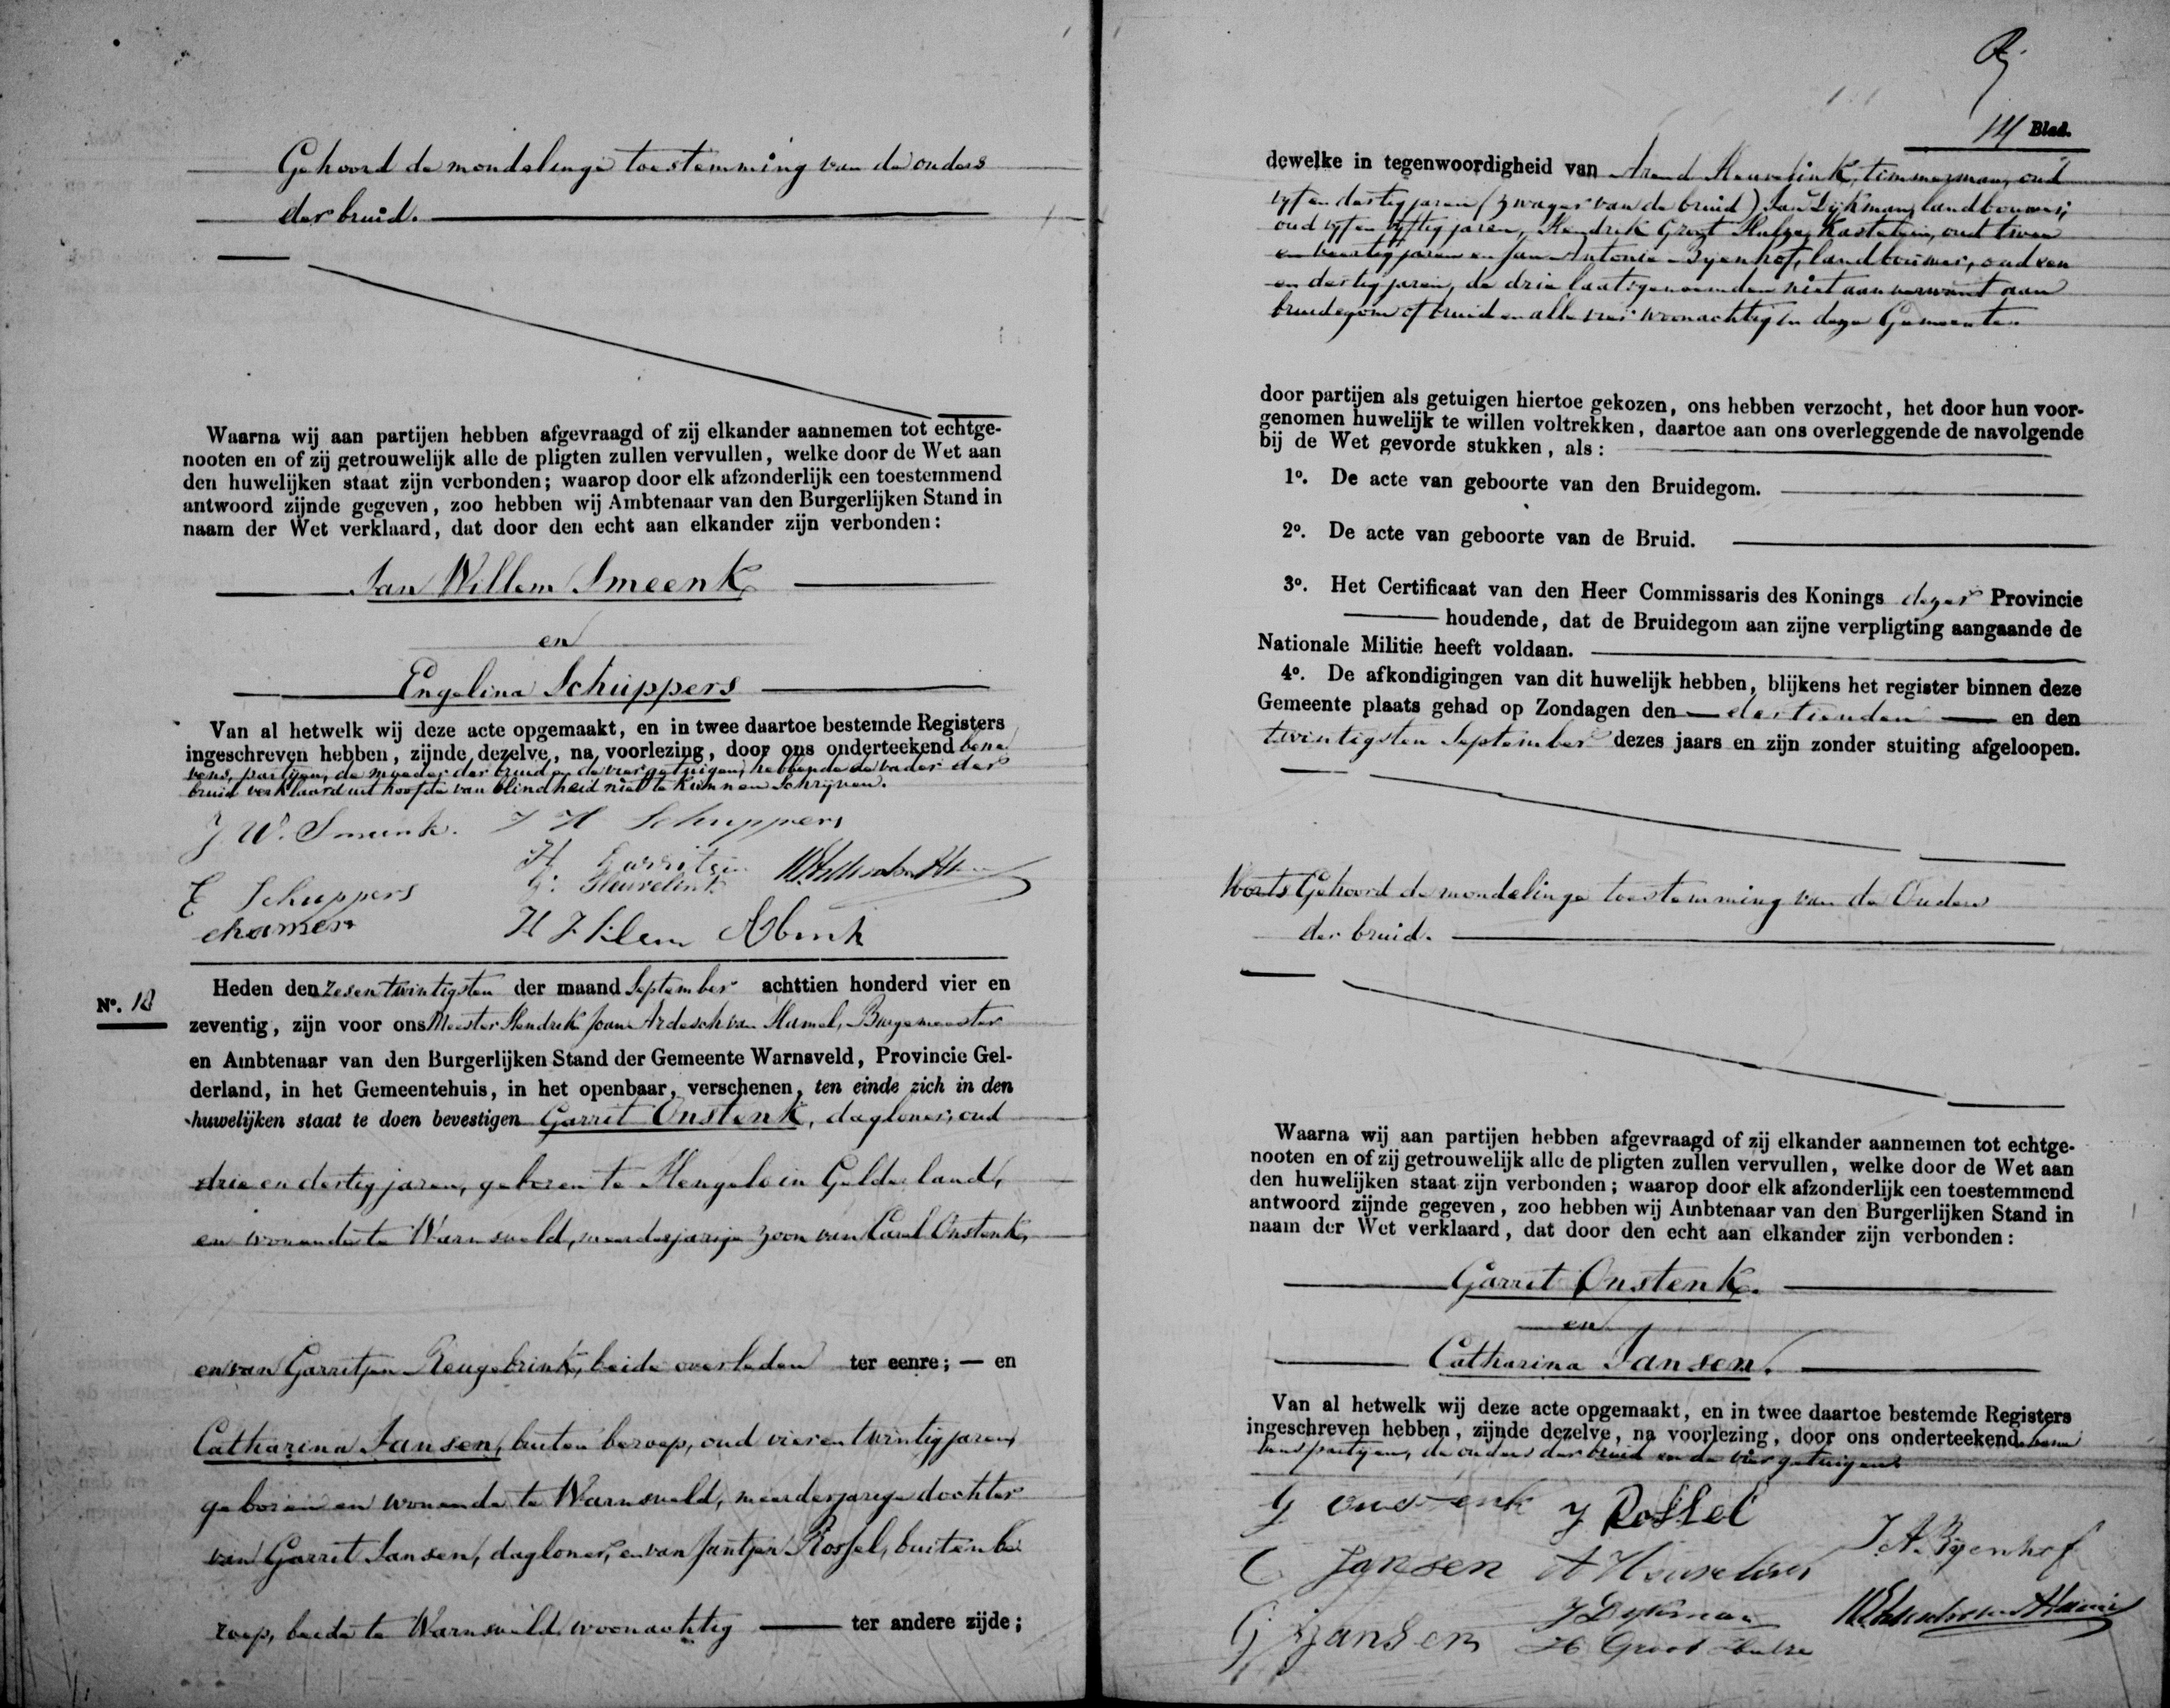 Gehoord de mondelinge toestemming van de ouders
der bruid.
Waarna wij aan partijen hebben afgevraagd of zij elkander aannemen tot echtge-
nooten en of zij getrouwelijk alle de pligten zullen vervullen, welke door de Wet aan
den huwelijken staat zijn verbonden; waarop door elk afzonderlijk een toestemmend
antwoord zijnde gegeven, zoo hebben wij Ambtenaar van den Burgerlijken Stand in
naam der Wet verklaard, dat door den echt aan elkander zijn verbonden:
Jan Willem Smeenk
en
Engelina Schuppers
Van al hetwelk wij deze acte opgemaakt, en in twee daartoe bestemde Registers
ingeschreven hebben, zijnde dezelve, na voorlezing, door ons onderteekend bene
vens partijen, de moeder der bruid en de vier getuigen, hebbende de vader der
bruid verklaard uit hoofde van blindheid niet te kunnen schrijven.
J W. Smeenk. J H Schuppers
H Garritsen
E Schuppers G. Heuvelink
H J Klem
No. 18
Heden den zesentwintigsten der maand September achttien honderd vier en
zeventig, zijn voor ons Meester Hendrik Joan Ardesch van Hamel, Burgemeester
en Ambtenaar van den Burgerlijken Stand der Gemeente Warnsveld, Provincie Gel-
derland, in het Gemeentehuis, in het openbaar, verschenen, ten einde zich in den
huwelijken staat te doen bevestigen Garrit Onstenk, dagloner, oud
drie en dertig jaren, geboren te Hengelo in Gelderland,
en wonende te Warnsveld, meerderjarige zoon van Carel Onstenk,
en van Garritjen Reugebrink, beide overleden ter eenre; — en
Catharina Jansen, buiten beroep, oud vier en twintig jaren,
geboren en wonende te Warnsveld, meerderjarige dochter
van Garrit Jansen, dagloner, en van Jantjen Rossel, buiten be
roep, beide te Warnsveld woonachtig ter andere zijde;
14 Blad.
dewelke in tegenwoordigheid van Arend Heuvelink, timmerman, oud
vyf en dertig jaren (zwager van de bruid) Jan Dykman, landbouwer,
oud vyf en vyftig jaren, Hendrik Groot Hulze, Kastelein, oud twee
en veertig jaren en Jan Antonie Byenhof, landbouwer, oud een
en dertig jaren, de drie laatstgenoemden niet aanverwant aan
bruidegom of bruid en alle vier woonachtig in deze Gemeente.
door partijen als getuigen hiertoe gekozen, ons hebben verzocht, het door hun voor-
genomen huwelijk te willen voltrekken, daartoe aan ons overleggende de navolgende
bij de Wet gevorde stukken, als:
1o. De acte van geboorte van den Bruidegom.
2o. De acte van geboorte van de Bruid.
3o. Het Certificaat van den Heer Commissaris des Konings dezer Provincie
houdende, dat de Bruidegom aan zijne verpligting aangaande de
Nationale Militie heeft voldaan.
4o. De afkondigingen van dit huwelijk hebben, blijkens het register binnen deze
Gemeente plaats gehad op Zondagen den dertienden en den
twintigsten September dezes jaars en zijn zonder stuiting afgeloopen.
Voorts Gehoord de mondelinge toestemming van de Ouders
der bruid.
Waarna wij aan partijen hebben afgevraagd of zij elkander aannemen tot echtge-
nooten en of zij getrouwelijk alle de pligten zullen vervullen, welke door de Wet aan
den huwelijken staat zijn verbonden; waarop door elk afzonderlijk een toestemmend
antwoord zijnde gegeven, zoo hebben wij Ambtenaar van den Burgerlijken Stand in
naam der Wet verklaard, dat door den echt aan elkander zijn verbonden:
Garrit Onstenk.
en
Catharina Jansen.
Van al hetwelk wij deze acte opgemaakt, en in twee daartoe bestemde Registers
ingeschreven hebben, zijnde dezelve, na voorlezing, door ons onderteekend bene
vens partijen, de ouders der bruid en de vier getuigen.
G onstenk J Rossel
J. A. Byenhof
C Jansen A Heuvelink
J Dykman
G Jansen H Groot Hulze